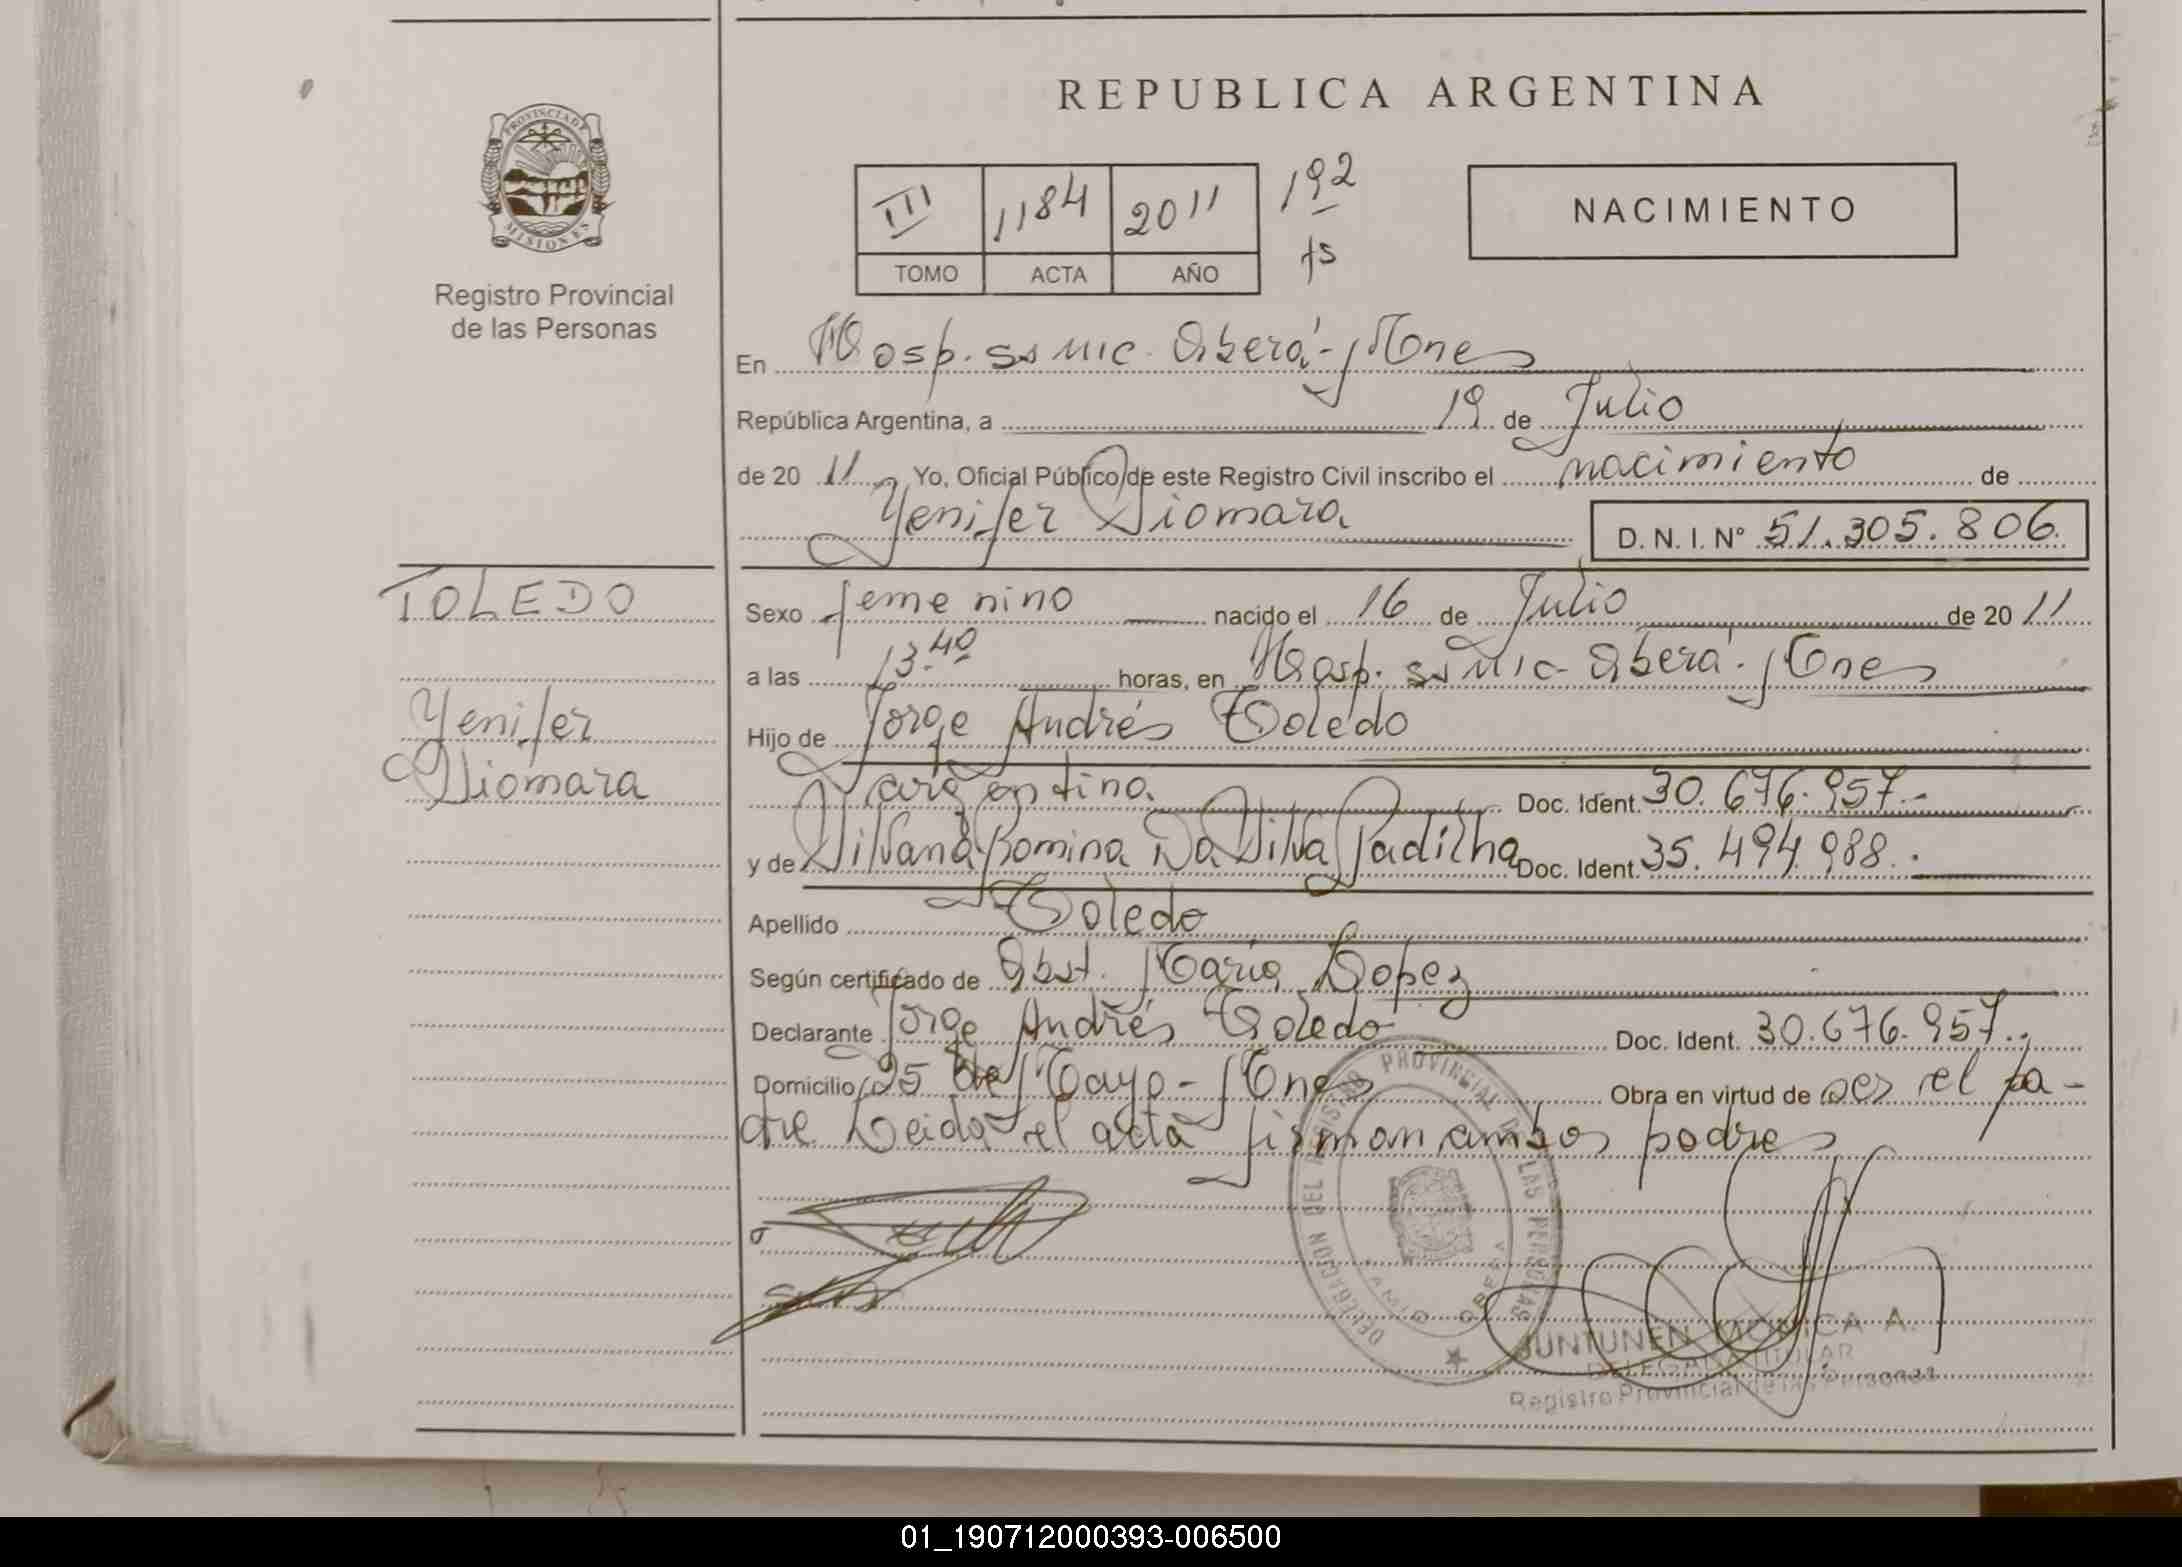 REPUBLICA ARGENTINA
PROVINCIA DE
MISIONES
Registro Provincial
de las Personas
III 1184 2011 192
TOMO ACTA AÑO fs
NACIMIENTO
En Hosp. ss mic. Oberá - Mnes
República Argentina, a 19 de Julio
de 2011 Yo, Oficial Público de este Registro Civil inscribo el nacimiento de
Yenifer Siomara D. N. I. Nº 51.305.806.
TOLEDO
Yenifer
Siomara
Sexo femenino nacido el 16 de Julio de 2011
a las 13.40 horas, en Hosp. ss mic - Oberá - Mnes
Hijo de Jorge Andrés Toledo
argentino. Doc. Ident. 30.676.957.-
y de Silvana Romina Da Silva Padilha Doc. Ident. 35.494.988.-
Apellido Toledo
Según certificado de Obst. María Lopez
Declarante Jorge Andrés Toledo Doc. Ident. 30.676.957.
Domicilio 25 de Mayo - Mnes Obra en virtud de ser el pa-
dre Leida el acta firman ambos padres
DELEGACION DEL REGISTRO PROVINCIAL DE LAS PERSONAS
JUNTUNEN MONICA A.
DELEGADA TITULAR
Registro Provincial de las Personas
01_190712000393-006500